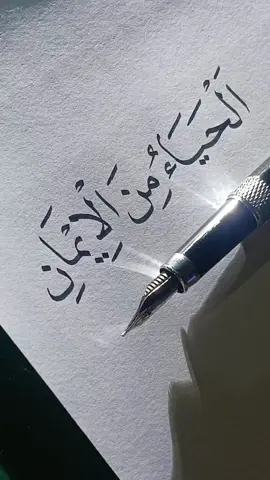 اَلْحَيَاءُ مِنَ الْإِيْمَانِ